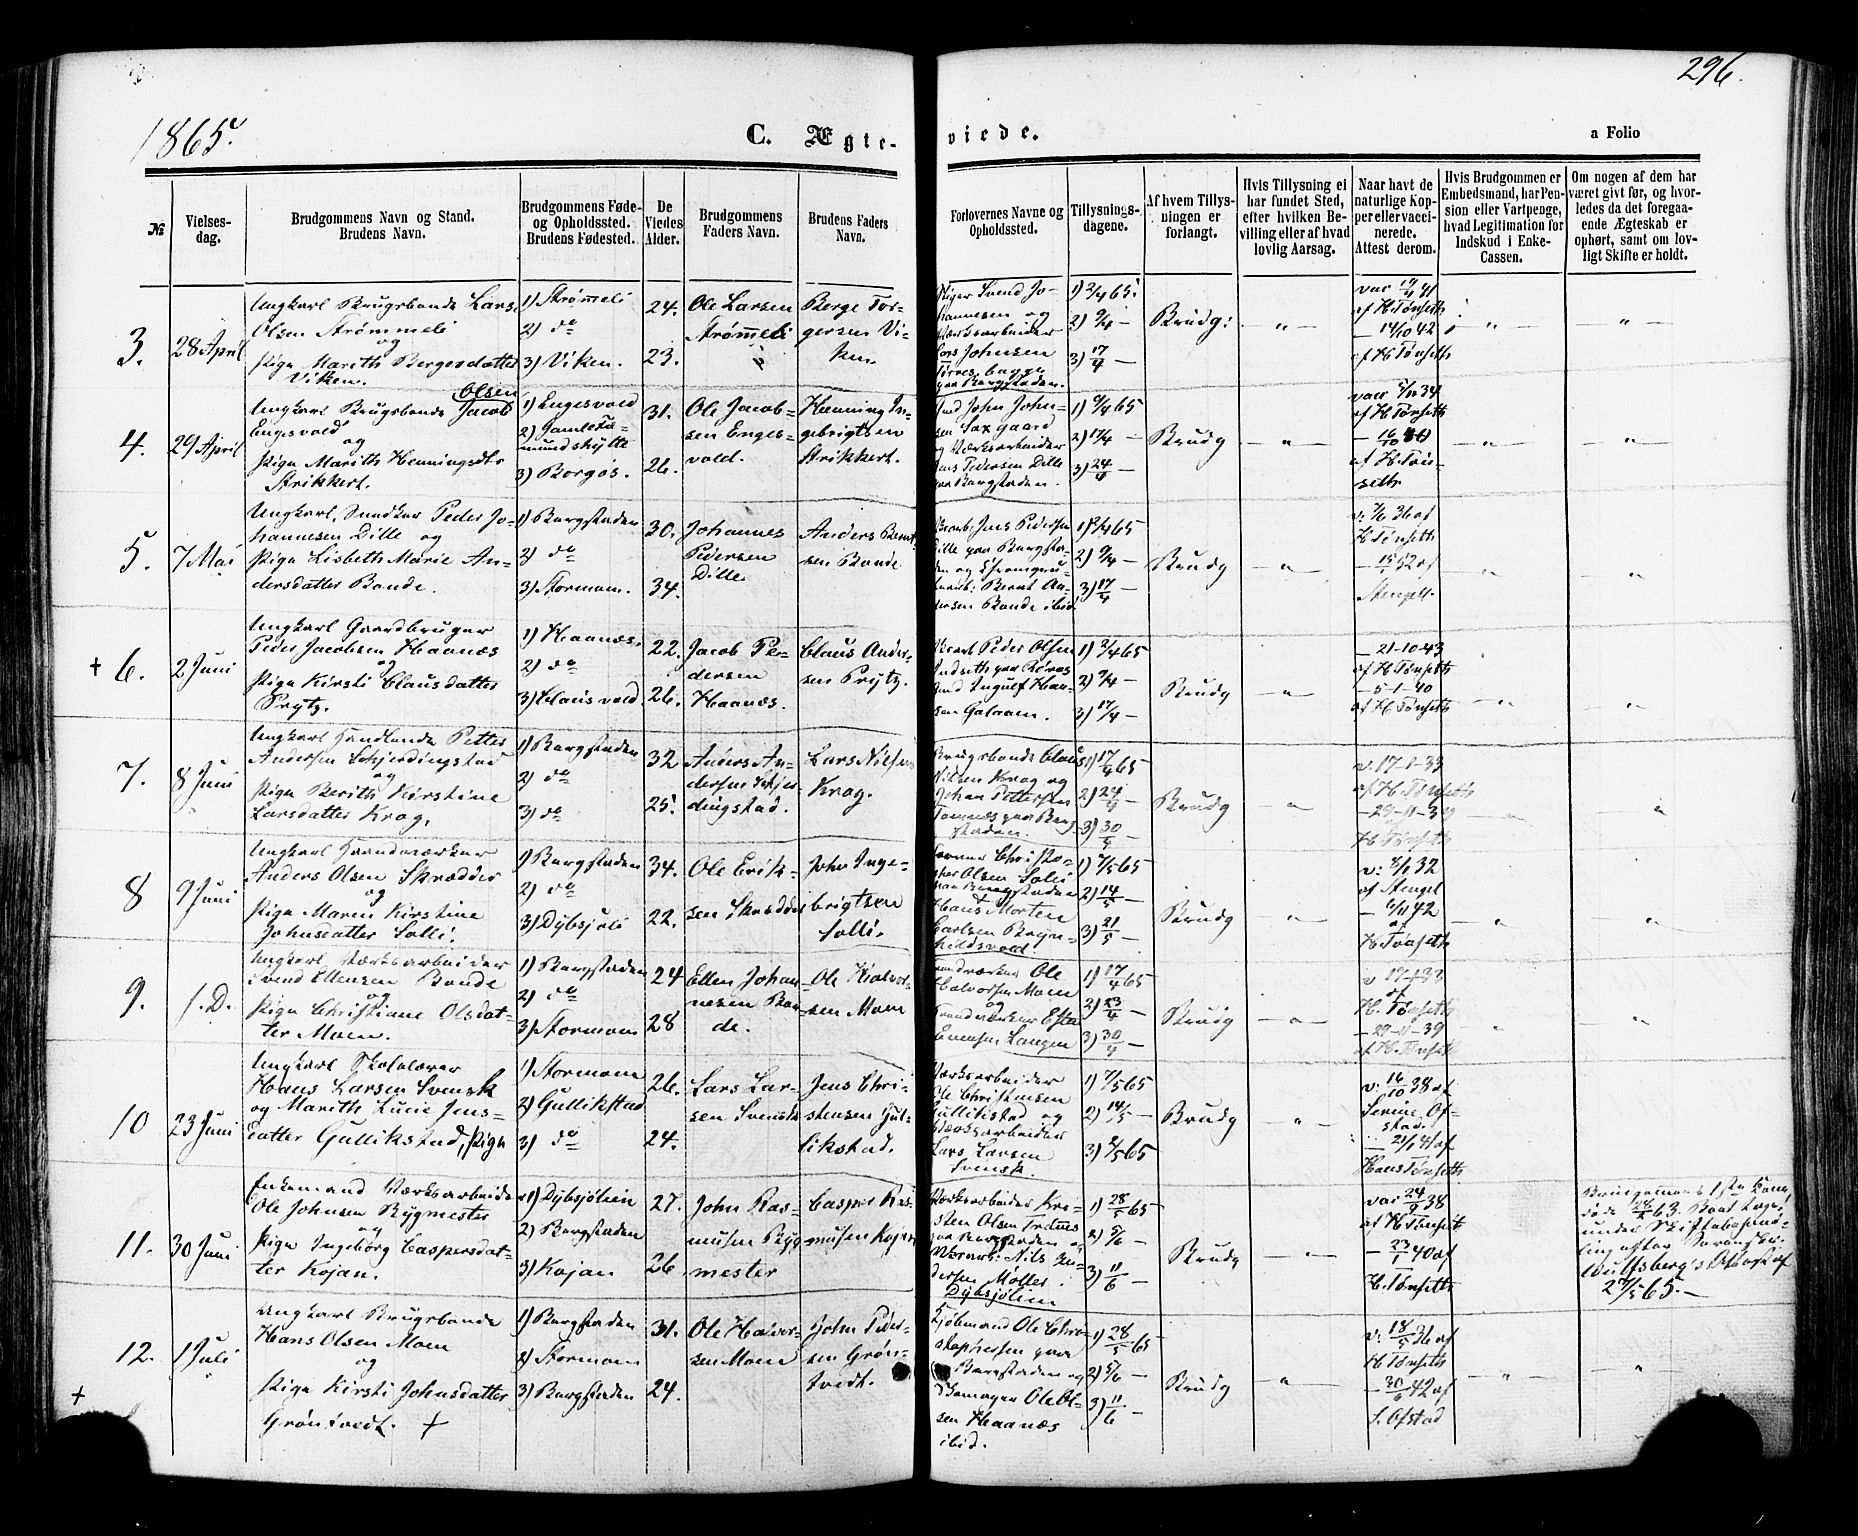 296.
1865.
C. Ægteviede.
a Folio
№
Vielsesdag.
Brudgommens Navn og Stand.
Brudens Navn.
Brudgommens Føde-
og Opholdssted.
Brudens Fødested.
De
Viedes
Alder.
Brudgommens
Faders Navn.
Brudens Faders
Navn.
Forlovernes Navne og
Opholdssted.
Tillysnings-
dagene.
Af hvem Tillys-
ningen er
forlangt.
Hvis Tillysning ei
har fundet Sted,
efter hvilken Be-
villing eller af hvad
lovlig Aarsag.
Naar havt de
naturlige Kop-
per eller vacci-
nerede.
Attest derom.
Hvis Brudgommen er
Embedsmand, har Pen-
sion eller Vartpenge,
hvad Legitimation for
Indskud i Enke-
Cassen.
Om nogen af dem har
været givt før, og hvor-
ledes da det foregaa-
ende Ægteskab er
ophørt, samt om lov-
ligt Skifte er holdt.
3.
28 April
Ungkarl Brugsbonde Lars
Olsen Strømmeli
og
Pige Marith Bergersdatter
Viken.
1) Strømeli
2) do
3) Viken.
24.
23.
Ole Larsen
Strømeli
Berge Tor-
gersen Vi-
ken.
Svend Jo-
hannesen og
Værksarbeider
Lars Johnsen
paa Bergstaden.
1) 2/4 65
2) 9/4 —
3) 17/4 —
Brudg:
vac 19/4 41
af H. Tønseth
— 14/10 42
af H. Tønseth
4.
29 April
Ungkarl Brugsbonde Jacob Olsen
Engesvold
og
Pige Marith Henningsdtr
Strikkert.
1) Engesvold
2) Gamle Fæ-
mundshytte
3) Borgos.
31.
26.
Ole Jacob-
sen Enges-
vold.
Henning In-
gebrigtsen
Strikkert.
John John-
sen Saxgaard
og Værksarbeider
Jens Pedersen Dille
paa Bergstaden.
1) 9/4 65
2) 17/4 —
3) 24/4 —
Brudg
vac 5/11 34
af H. Tønseth
af H. Tøn-
seth
5.
7 Mai
Ungkarl, Snedker Peder Jo-
hannesen Dille og
Pige Lisbeth Marie An-
dersdatter Bonde.
1) Bergstaden
2) do
3) Stormoen.
30.
34.
Johannes
Pedersen
Dille
Anders Bernt-
sen Bonde
Jens Pedersen
Dille paa Bergsta-
den og
Bernt An-
dersen Bonde ibid.
1) 2/4 65
2) 9/4 —
3) 17/4 —
Brudg
v: 7/6 36 af
H. Tønseth
— 15/5 52 af
Stengel.
+ 6.
2 Juni
Ungkarl Gaardbruger
Peder Jacobsen Haanæs
og
Pige Kirsti Clausdatter
Prytz.
1) Haanæs.
2) do
3) Clausvold
22.
26.
Jacob Pe-
dersen
Haanæs.
Claus Ander-
sen Prytz.
Peder Olsen
Indseth paa Røros
Ingulf Han-
sen Galaaen.
1) 2/4 65
2) 9/4 —
3) 17/4 —
Brudg
— 21-10-43
af H. Tønseth
— 5-1-40
af H. Tønseth
7.
8 Juni
Ungkarl Handlende Petter
Andersen Schjerdingstad
og
Pige Berith Kirstine
Larsdatter Krog.
1) Bergstaden
2) do
3) do
32
25.
Anders An-
dersen Schjer-
dingstad.
Lars Nilsen
Krog.
Brugsbonde Claus
Nilsen Krog og
Johan Pettersen
Tamnes paa Berg-
staden.
1) 17/4 65
2) 24/4 —
3) 30/4 —
Brudg
v. 17-1-33
af H. Tønseth
— 29-11-39
H. Tønseth
8
9 Juni
Ungkarl Haandværker
Anders Olsen Skrædder
og
Pige Maren Kirstine
Johnsdatter Solli.
1) Bergstaden
2) do
3) Dybsjøli
34.
22.
Ole Erik-
sen Skrædder
John Inge-
brigtsen
Solli.
Christo-
pher Olsen Solli
paa Bergstaden
Hans Morten
Carlsen Bryn-
hildsvold.
1) 7/5 65
2) 14/5 —
3) 21/5 —
Brudg
af Stengel
— 6/11 42
af
H. Tønseth
9.
s. D.
Ungkarl Værksarbeider
Svend Ellensen Bonde
og
Pige Christiane Olsdat-
ter Moen.
1) Bergstaden
2) do
3) Stormoen
24
28
Ellen Johan-
nesen Bon-
de.
Ole Halvor-
sen Moen
Haandværker Ole
Halvorsen Moen
og
Haandværker Esten
Evensen Langen
1) 17/4 65
2) 23/4 —
3) 30/4 —
Brudg
v 17-1-33
af
H. Tønseth
— 29-11-39
af H. Tønseth
10
23 Juni
Ungkarl Skolelærer
Hans Larsen Svensk
og Marith Lucie Jens-
datter Gullikstad, Pige
1) Stormoen
2) Gullikstad
3) do
26.
24.
Lars Lar-
sen Svensk
Jens Chri-
stensen Gul-
likstad.
Værksarbeider
Ole Christensen
Gullikstad og
Værksarbeider
Lars Larsen
Svensk.
1) 7/5 65
2) 14/5 —
3) 21/5 65
Brudg
v: 16/10 38 af
Serine Of-
stad.
— 21/1 41 af
Hans Tønseth
11.
30 Juni
Enkemand Værksarbeider
Ole Johnsen Rygmester
og
Pige Ingebørg Caspersdat-
ter Kojan.
1) Dybsjølien
2) Bergstaden
3) Kojan
27.
26
John Ras-
musen Ryg-
mester
Casper Ras-
musen Kojan
Værksarbeider Kri-
sten Olsen Trøtnes
paa Bergstaden og
Værksarb: Nils An-
dersen Møller
Dybsjølien
1) 28/5 65
2) 5/6 —
3) 11/6 —
Brudg
vac 24/9 38
af H. Tønseth
— 23/1 40 af
H. Tønseth
Brudgomens 1ste Kone
døde 63. Boet toges
under Skiftebehand-
ling efter Sorenskr.
Wulfsberg's Attest af
27/5 65.—
12.
1 Juli
Ungkarl Brugsbonde
Hans Olsen Moen
og
Pige Kirsti Johnsdatter
Grøntvedt. +
1) Bergstaden
2) Stormoen
3) Bergstaden
31.
24.
Ole Halvor-
sen Moen
John Peder-
sen Grøn-
tvedt.
Kjøbmand Ole Chri-
stophersen paa
Bergstaden og
Skomager Ole Ol-
sen Haanæs
ibid.
1) 28/5 65
2) 5/6 —
3) 11/6 —
Brudg
v: 18/5 36 af
H. Tønseth
— 30/9 42 af
S. Ofstad
+